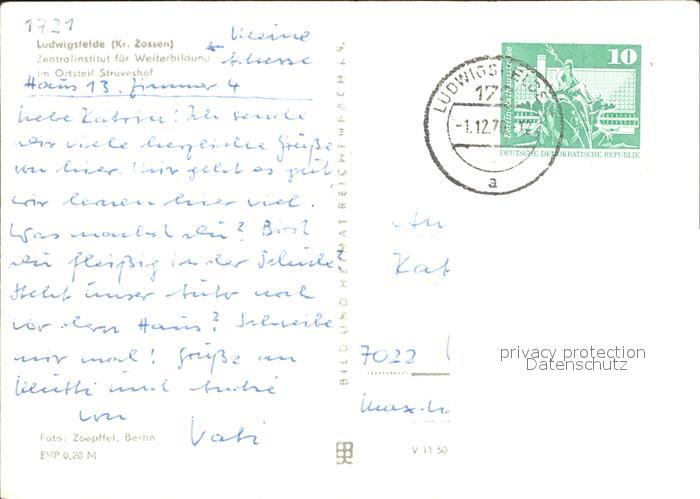 1721
Ludwigsfelde (Kr. Zossen)
Zentralinstitut für Weiterbildung
im Ortsteil Struveshof
← Meine
Adresse
Haus 13. Zimmer 4
Liebe Katrin! Ich sende
dir viele herzliche Grüße
von hier. Mir geht es gut
wir lernen hier viel.
Was machst du? Bist
du fleißig in der Schule?
Steht unser Auto noch
vor dem Haus? Schreibe
mir mal! Grüße an
Mutti und André
von
Vati
Foto: Zoepffel, Berlin
EVP 0,20 M
BILD UND HEIMAT REICHENBACH i. V.
V 11 50
LUDWIGSFELDE
-1.12.76
a
10
DEUTSCHE DEMOKRATISCHE REPUBLIK
An
Kat
7022
Max-
privacy protection
Datenschutz